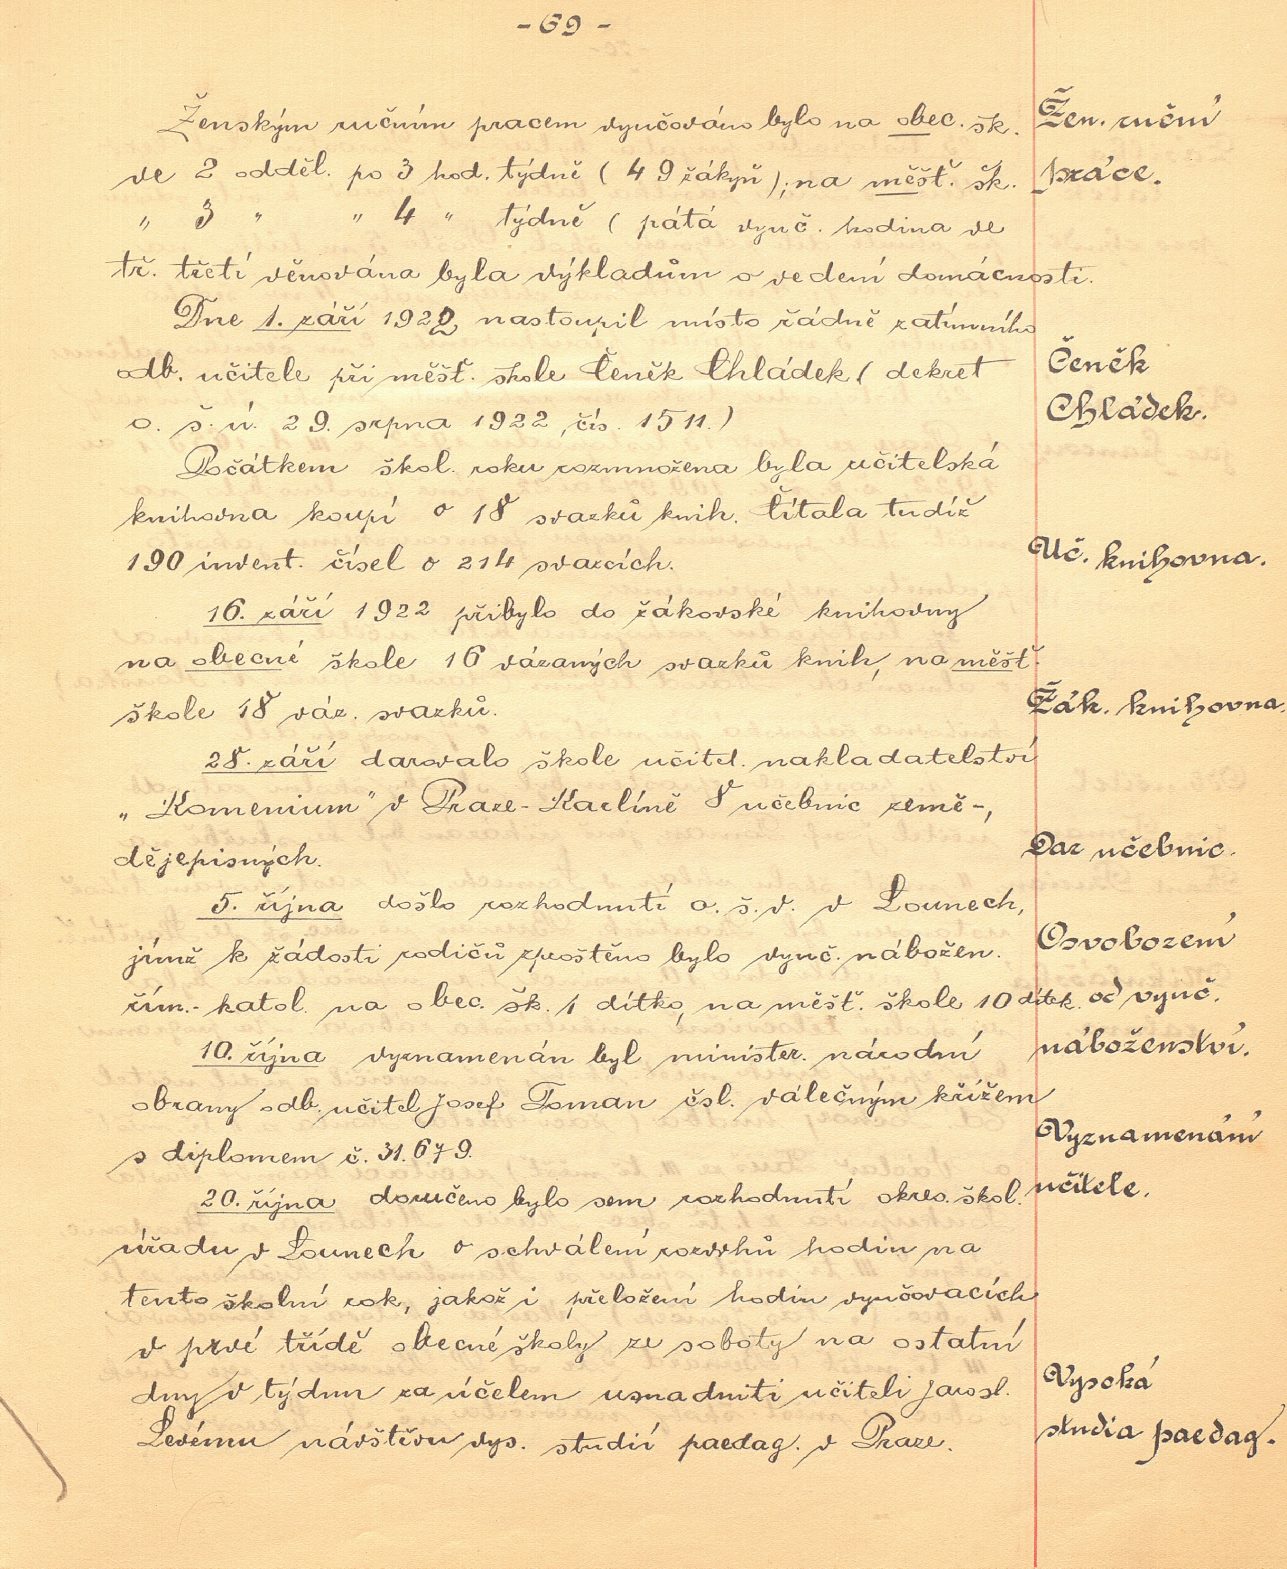 - 69 -
Ženským ručním pracem vyučováno bylo na obec. šk.
Žen. ruční
ve 2 odděl. po 3 hod. týdně ( 49 žákyň ); na měšť. šk.
práce.
„ 3 „ „ 4 „ týdně ( pátá vyuč. hodina ve
tř. třetí věnována byla výkladům o vedení domácnosti.
Dne 1. září 1922 nastoupil místo řádně zatímního
odb. učitele při měšť. škole Čeněk Chládek ( dekret
Čeněk
o. š. ú. 29. srpna 1922, čís. 1511.)
Chládek.
Počátkem škol. roku rozmnožena byla učitelská
knihovna koupí o 18 svazků knih. Čítala tudíž
190 invent. čísel o 214 svazcích.
Uč. knihovna.
16. září 1922 přibylo do žákovské knihovny
na obecné škole 16 vázaných svazků knih, na měšť.
škole 18 váz. svazků.
Žák. knihovna.
28. září darovalo škole učitel. nakladatelství
„Komenium" v Praze-Karlíně 8 učebnic země-,
dějepisných.
Dar učebnic.
5. října došlo rozhodnutí o. š. v. v Lounech,
jímž k žádosti rodičů zproštěno bylo vyuč. nábožen.
Osvobození
řím.- katol. na obec. šk. 1 dítko, na měšť. škole 10 dítek.
od vyuč.
10. října vyznamenán byl minister. národní
náboženství.
obrany odb. učitel Josef Toman čsl. válečným křížem
Vyznamenání
s diplomem č. 31.679.
učitele.
20. října doručeno bylo sem rozhodnutí okres. škol.
úřadu v Lounech o schválení rozvrhů hodin na
tento školní rok, jakož i přeložení hodin vyučovacích
v prvé třídě obecné školy ze soboty na ostatní
Vysoká
dny v týdnu za účelem usnadniti učiteli Jarosl.
studia paedag.
Levému návštěvu vys. studií paedag. v Praze.